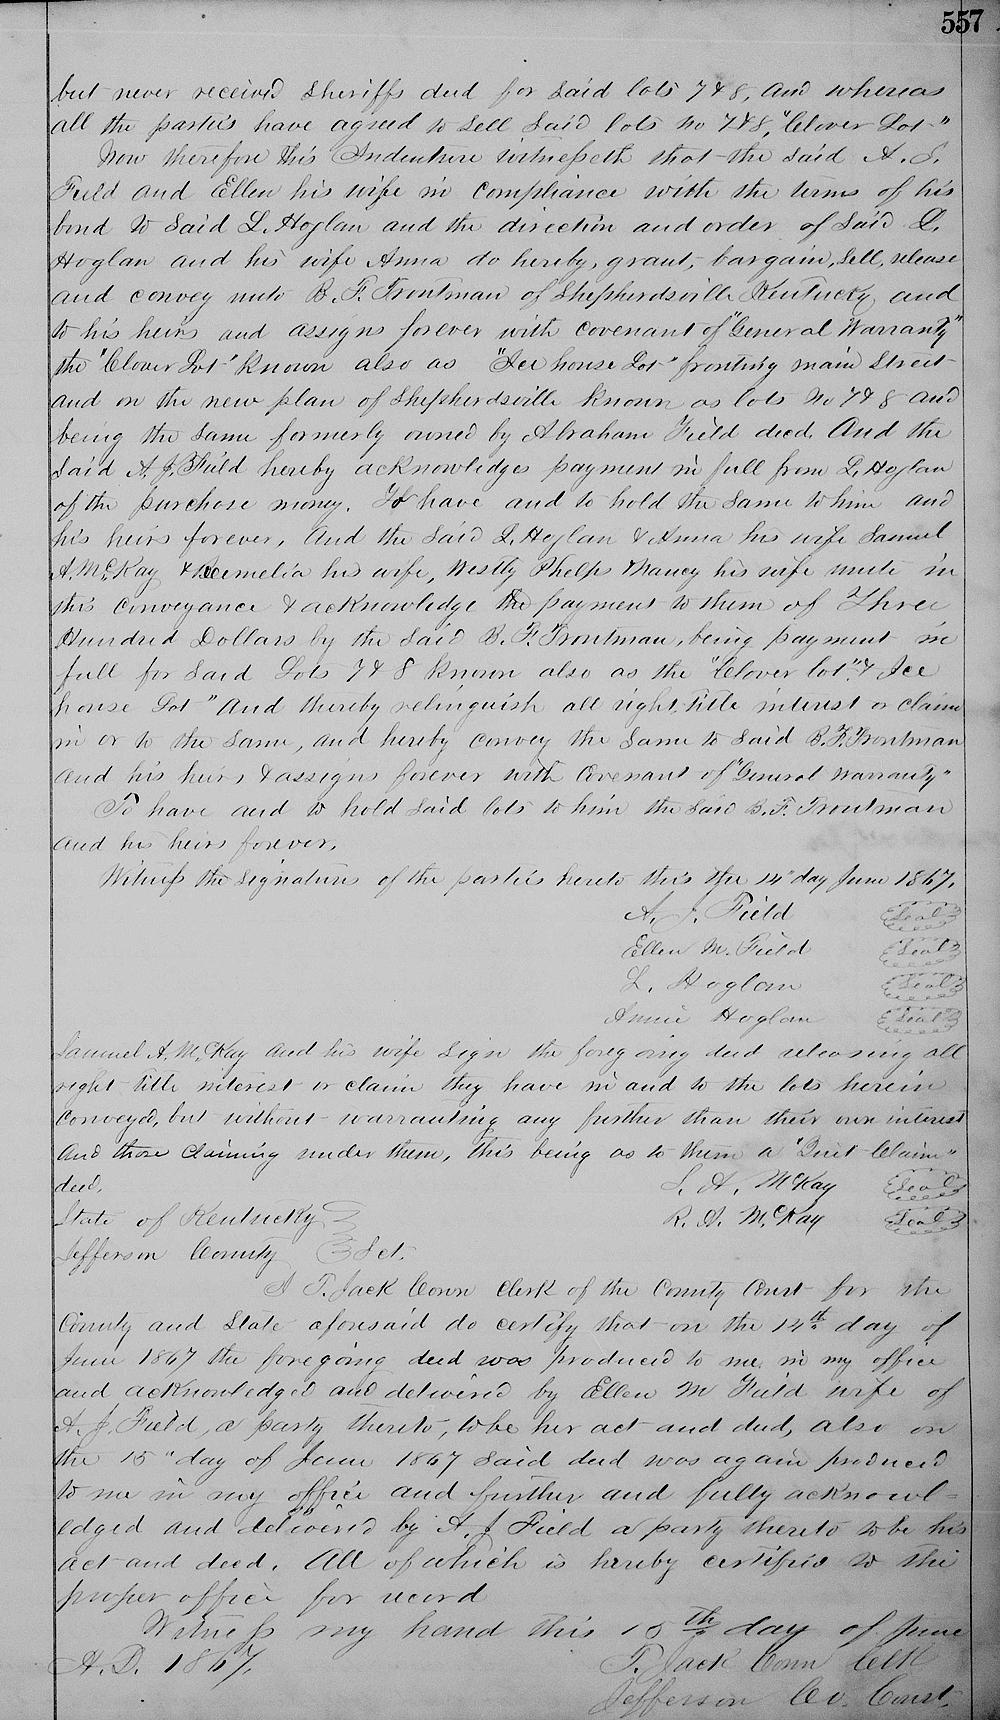 557
but never received Sheriffs deed for Said lots 7 & 8, And whereas
all the parties have agreed to Sell Said lots No 7 & 8, "Clover Lot"
Now therefore this Indenture witnesseth that the Said A. J.
Field and Ellen his wife in compliance with the terms of his
bond to Said L. Hoglan and the direction and order of Said L.
Hoglan and his wife Anna do hereby, grant, bargain, Sell, release
and convey unto B. F. Troutman of Shepherdsville Kentucky and
to his heirs and assigns forever with covenant of "General Warranty"
the "Clover Lot" Known also as "Ice house Lot" fronting main Street
and on the new plan of Shepherdsville known as lots No 7 & 8 and
being the Same formerly owned by Abraham Field decd. And the
Said A. J. Field hereby acknowledges payment in full from L. Hoglan
of the purchase money. To have and to hold the Same to him and
his heirs forever, And the Said L. Hoglan & Anna his wife Samuel
A. McKay & his wife, Westly Phelps & Nancy his wife unite in
this conveyance & acknowledge the payment to them of Three
Hundred Dollars by the Said B. F. Troutman, being payment in
full for Said Lots 7 & 8 Known also as the "Clover lot" & Ice
house Lot" And thereby relinquish all right, title interest or claim
in or to the Same, and hereby convey the Same to Said B. F. Troutman
and his heirs & assigns forever with Covenant of "General Warranty"
To have and to hold Said lots to him the Said B. F. Troutman
and his heirs forever.
Witness the Signatures of the parties hereto this the 14" day June 1867.
A. J. Field Seal
Ellen M. Field Seal
L. Hoglan Seal
Annie Hoglan Seal
Samuel A. McKay and his wife Sign the foregoing deed releasing all
right title interest or claim they have in and to the lots herein
Conveyed, but without warranting any further than their own interest
and those Claiming under them, this being as to them a "Quit Claim"
deed. S. A. McKay Seal
State of Kentucky R. A. McKay Seal
Jefferson County Sct.
I T. Jack Conn Clerk of the County Court for the
County and State aforesaid do certify that on the 14th day of
June 1867 the foregoing deed was produced to me in my office
and acknowledged and delivered by Ellen M Field wife of
A. J. Field, a party thereto, to be her act and deed, also on
the 15" day of June 1867 Said deed was again produced
to me in my office and further and fully acknowl-
edged and delivered by A. J Field a party thereto to be his
act and deed. All of which is hereby certified to the
proper office for record
Witness my hand this 15th day of June
A. D. 1867. T. Jack Conn Clk
Jefferson Co. Court.